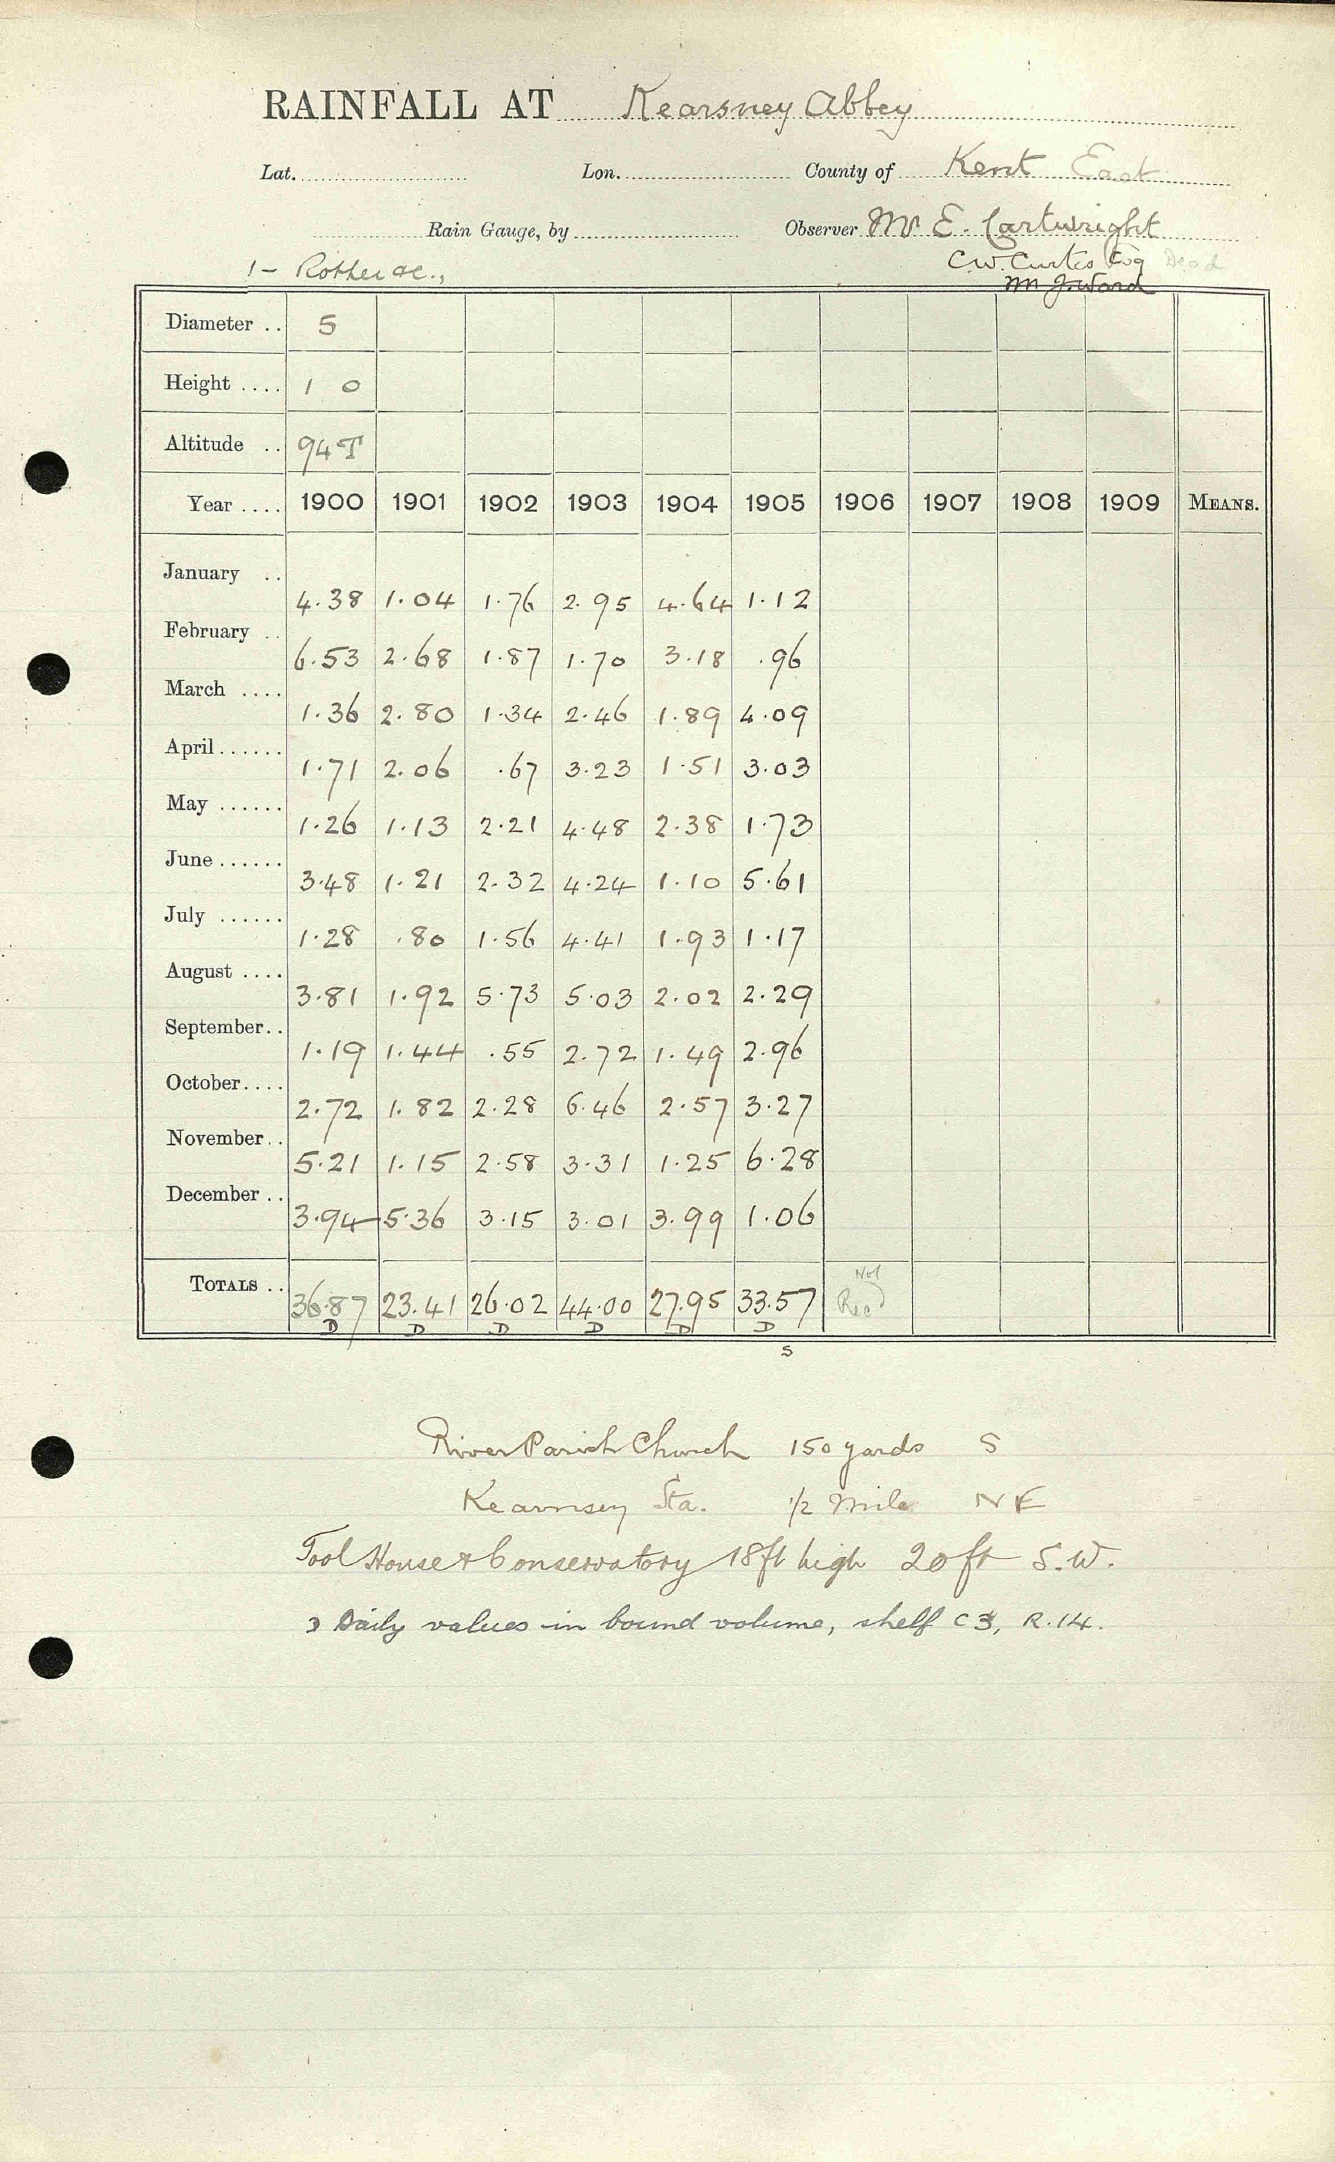 RAINFALL AT Kearsney Abbey
Lat. Lon. County of Kent East
Rain Gauge, by Observer Mr E. Cartwright
1 - Rother &c., C.W. Curtis Esq Dead
Mr J. Ward
Diameter .. 5
Height .... 1 0
Altitude .. 94 T
Year .... 1900 1901 1902 1903 1904 1905 1906 1907 1908 1909 MEANS.
January .. 4.38 1.04 1.76 2.95 4.64 1.12
February .. 6.53 2.68 1.87 1.70 3.18 .96
March .... 1.36 2.80 1.34 2.46 1.89 4.09
April...... 1.71 2.06 .67 3.23 1.51 3.03
May ...... 1.26 1.13 2.21 4.48 2.38 1.73
June...... 3.48 1.21 2.32 4.24 1.10 5.61
July ...... 1.28 .80 1.56 4.41 1.93 1.17
August .... 3.81 1.92 5.73 5.03 2.02 2.29
September.. 1.19 1.44 .55 2.72 1.49 2.96
October.... 2.72 1.82 2.28 6.46 2.57 3.27
November.. 5.21 1.15 2.58 3.31 1.25 6.28
December .. 3.94 5.36 3.15 3.01 3.99 1.06
TOTALS .. 36.87 23.41 26.02 44.00 27.95 33.57 Not Recd
D D D D D D
S
River Parish Church 150 yards S
Kearnsey Sta. 1/2 Mile N E
Tool House & Conservatory 18ft high 20 ft S.W.
Daily values in bound volume, shelf C3, R.14.